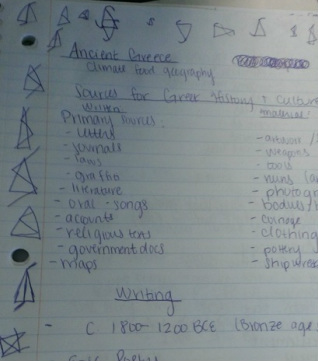 Ancient Greece
climate food geography
Sources for Greek History + Culture
written material
Primary Sources:
- letters - artwork /
- journals - weapons
- laws - tools
- graffiti - ruins
- literature - photogr
- oral - songs - bodies /
- acounts - coinage
- religious texts - clothing
- government docs - pottery
- maps - shipwre
Writing
- C 1800 - 1200 BCE (Bronze age